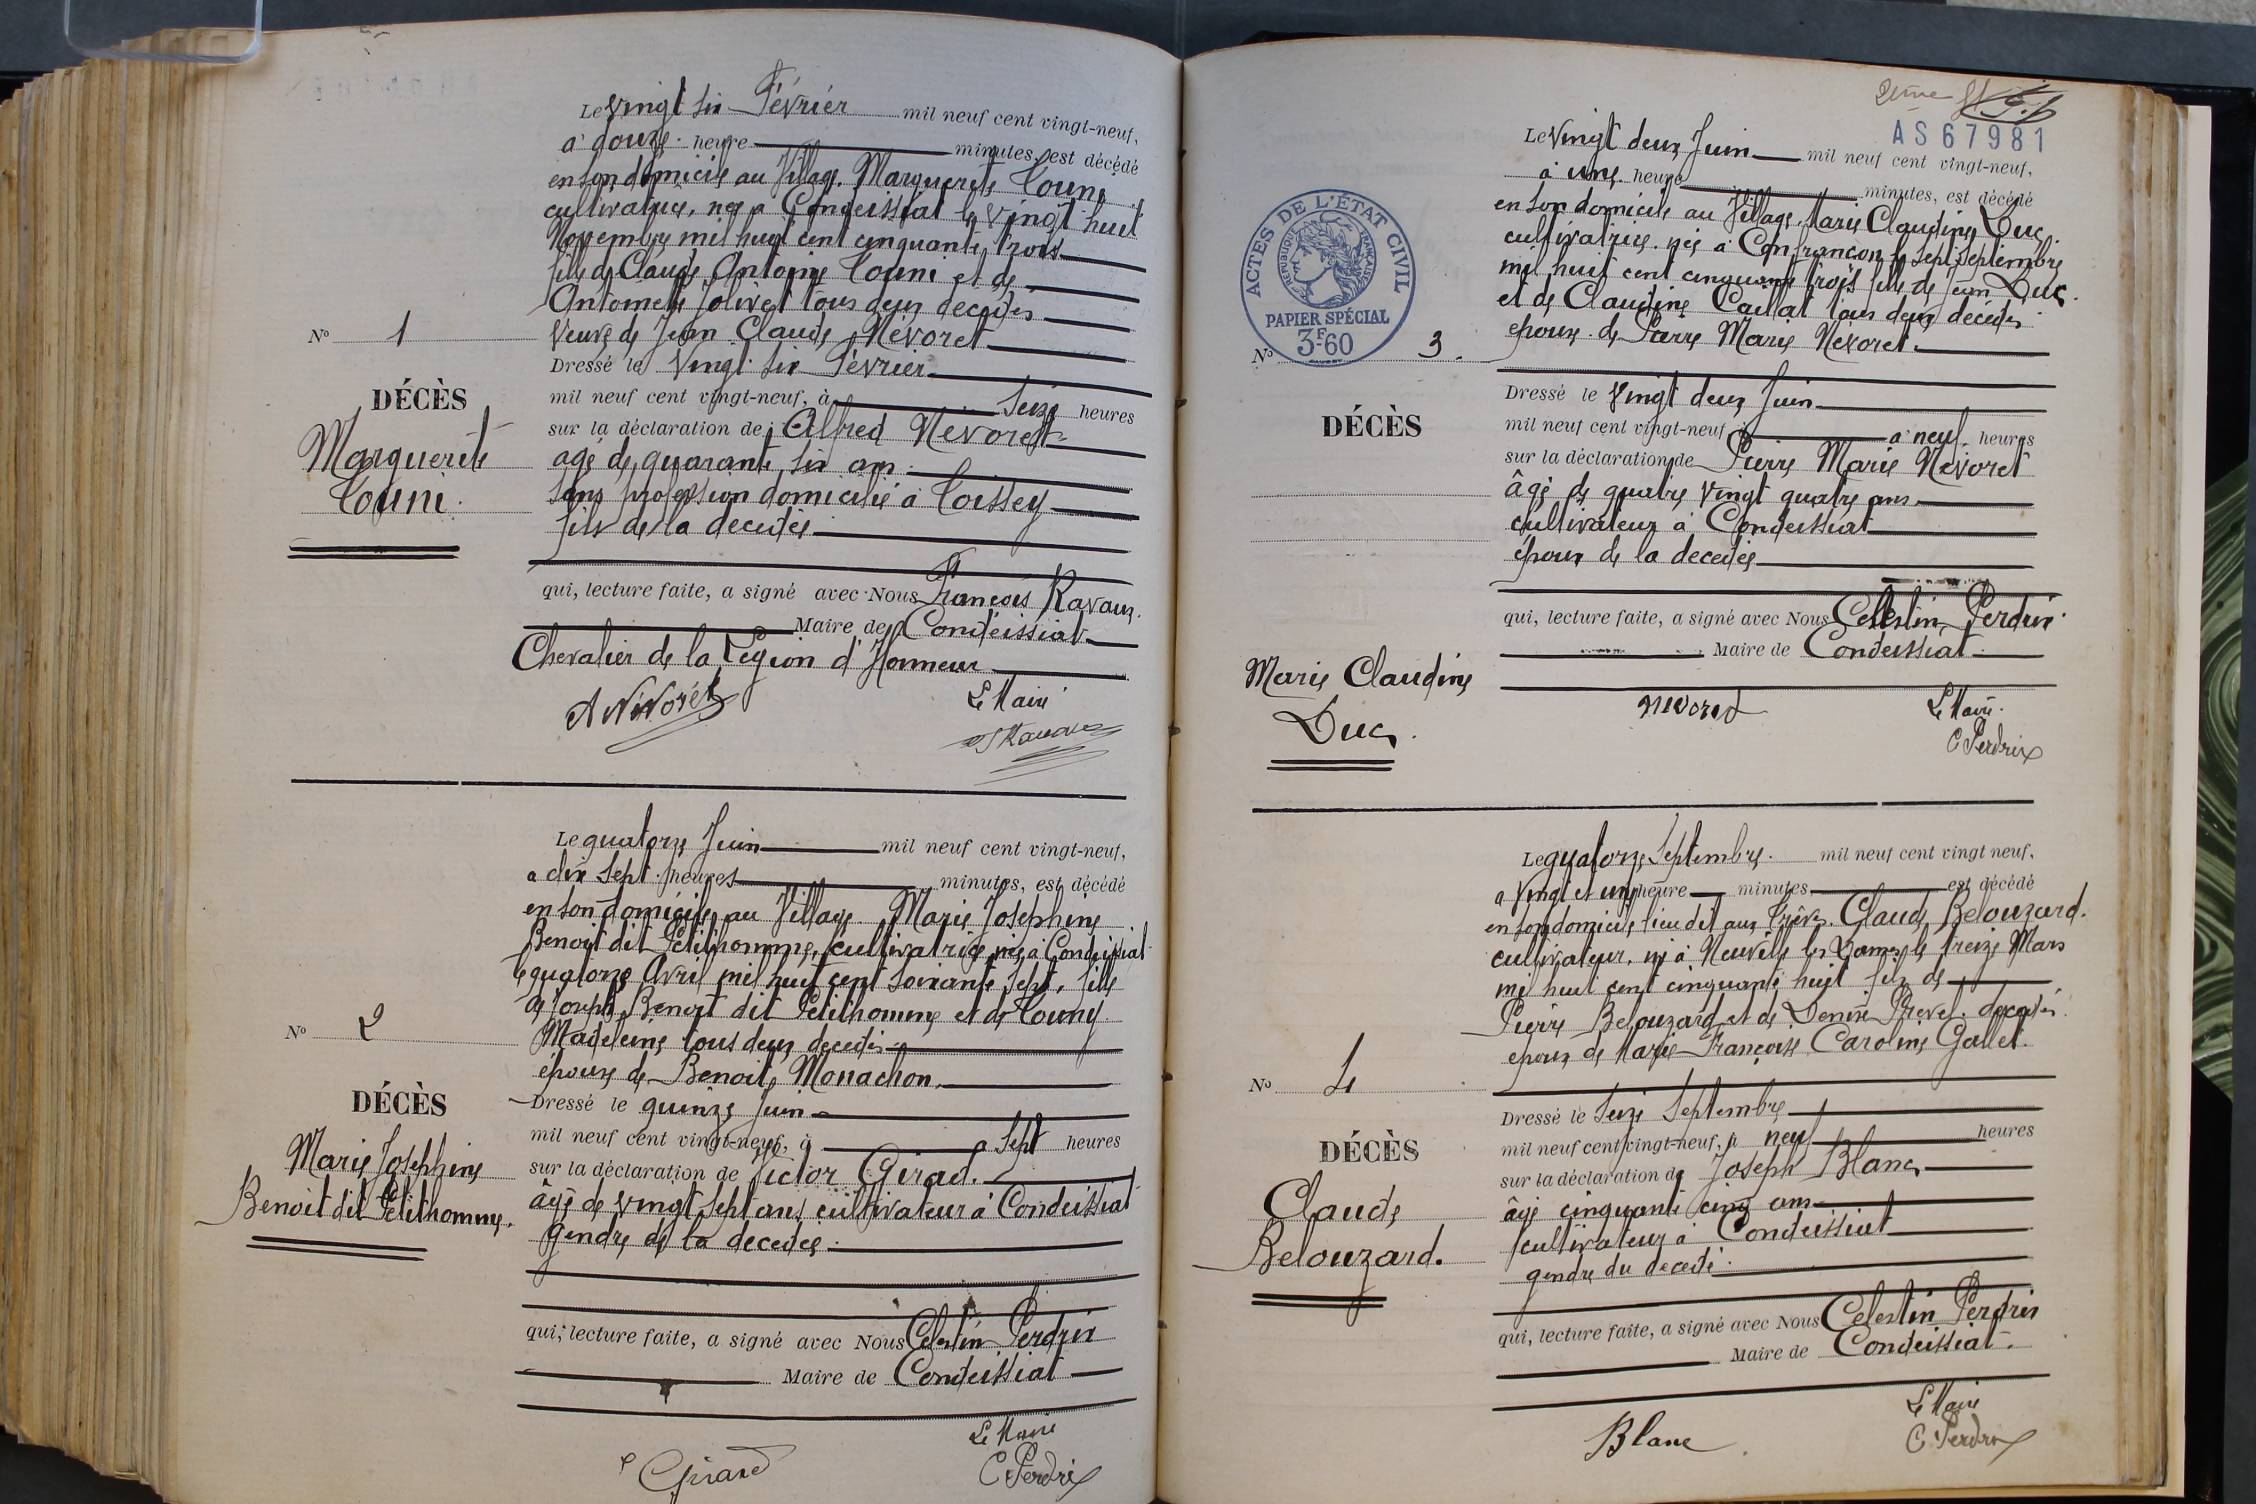 Le vingt six Février mil neuf cent vingt-neuf,
à douze heure minutes, est décédé
en son domicile au Village Marguerite Touni
cultivatrice, née à Condeissiat le vingt huit
Novembre mil huit cent cinquante trois
fille de Claude Antoine Touni et de
Antoinette Jolivet tous deux décédés
veuve de Jean Claude Nevoret
Dressé le vingt six Février
mil neuf cent vingt-neuf, à seize heures
sur la déclaration de Alfred Névoret
agé de quarante six ans
sans profession domicilié à Toissey
fils de la decedée
qui, lecture faite, a signé avec Nous François Ravaux
Maire de Condeissiat
Chevalier de la Légion d'Honneur
A Névoret
Le Maire
No 1
DÉCÈS
Marguerite
Touni
Le quatorze Juin mil neuf cent vingt-neuf,
a dix sept heures minutes, est décédé
en son domicile au Village Marie Josephine
Benoit dit Petithomme, cultivatrice née à Condeissiat
le quatorze Avril mil huit cent soixante sept, fille
de Joseph Benoit dit Petithomme et de Touny
Madeleine tous deux decedés
épouse de Benoit Monachon
Dressé le quinze Juin
mil neuf cent vingt-neuf, à a sept heures
sur la déclaration de Victor Girad.
âgé de vingt sept ans cultivateur à Condeissiat
gendre de la decedée
qui, lecture faite, a signé avec Nous Celestin Perdrix
Maire de Condeissiat
Le Maire
Girard
C Perdrix
No 2
DÉCÈS
Marie Josephine
Benoit dit Petithomme.
2ème
AS67981
Le vingt deux Juin mil neuf cent vingt-neuf,
à une heure minutes, est décédé
en son domicile au Village Marie Claudine Duc
cultivatrice née à Confrançon le sept septembre
mil huit cent cinquante trois fille de Jean Duc
et de Claudine Caillat tous deux décédés
epouse de Pierre Marie Nevoret
Dressé le vingt deux Juin
mil neuf cent vingt-neuf a neuf heures
sur la déclaration de Pierre Marie Nevoret
âgé de quatre vingt quatre ans
cultivateur à Condeissiat
époux de la decedée
qui, lecture faite, a signé avec Nous Celestin Perdrix
Maire de Condeissiat
nevoret
Le Maire
C Perdrix
ACTES DE L'ÉTAT CIVIL
RÉPUBLIQUE FRANÇAISE
PAPIER SPÉCIAL
3F60
No 3.
DÉCÈS
Marie Claudine
Duc.
Le quatorze Septembre mil neuf cent vingt neuf,
a vingt et une heure minutes est décédé
en son domicile lieu dit aux Claude Belouzard.
cultivateur, né à Neuville les Dames le treize Mars
mil huit cent cinquante huit fils de
Pierre Belouzard et de Denise Prevel decedés
epoux de Marie Françoise Caroline Gallet.
Dressé le seize Septembre
mil neuf cent vingt-neuf, à neuf heures
sur la déclaration de Joseph Blanc
âgé cinquante cinq ans
cultivateur à Condeissiat
gendre du decedé
qui, lecture faite, a signé avec Nous Celestin Perdrix
Maire de Condeissiat.
Le Maire
Blanc
C Perdrix
No 4
DÉCÈS
Claude
Belouzard.